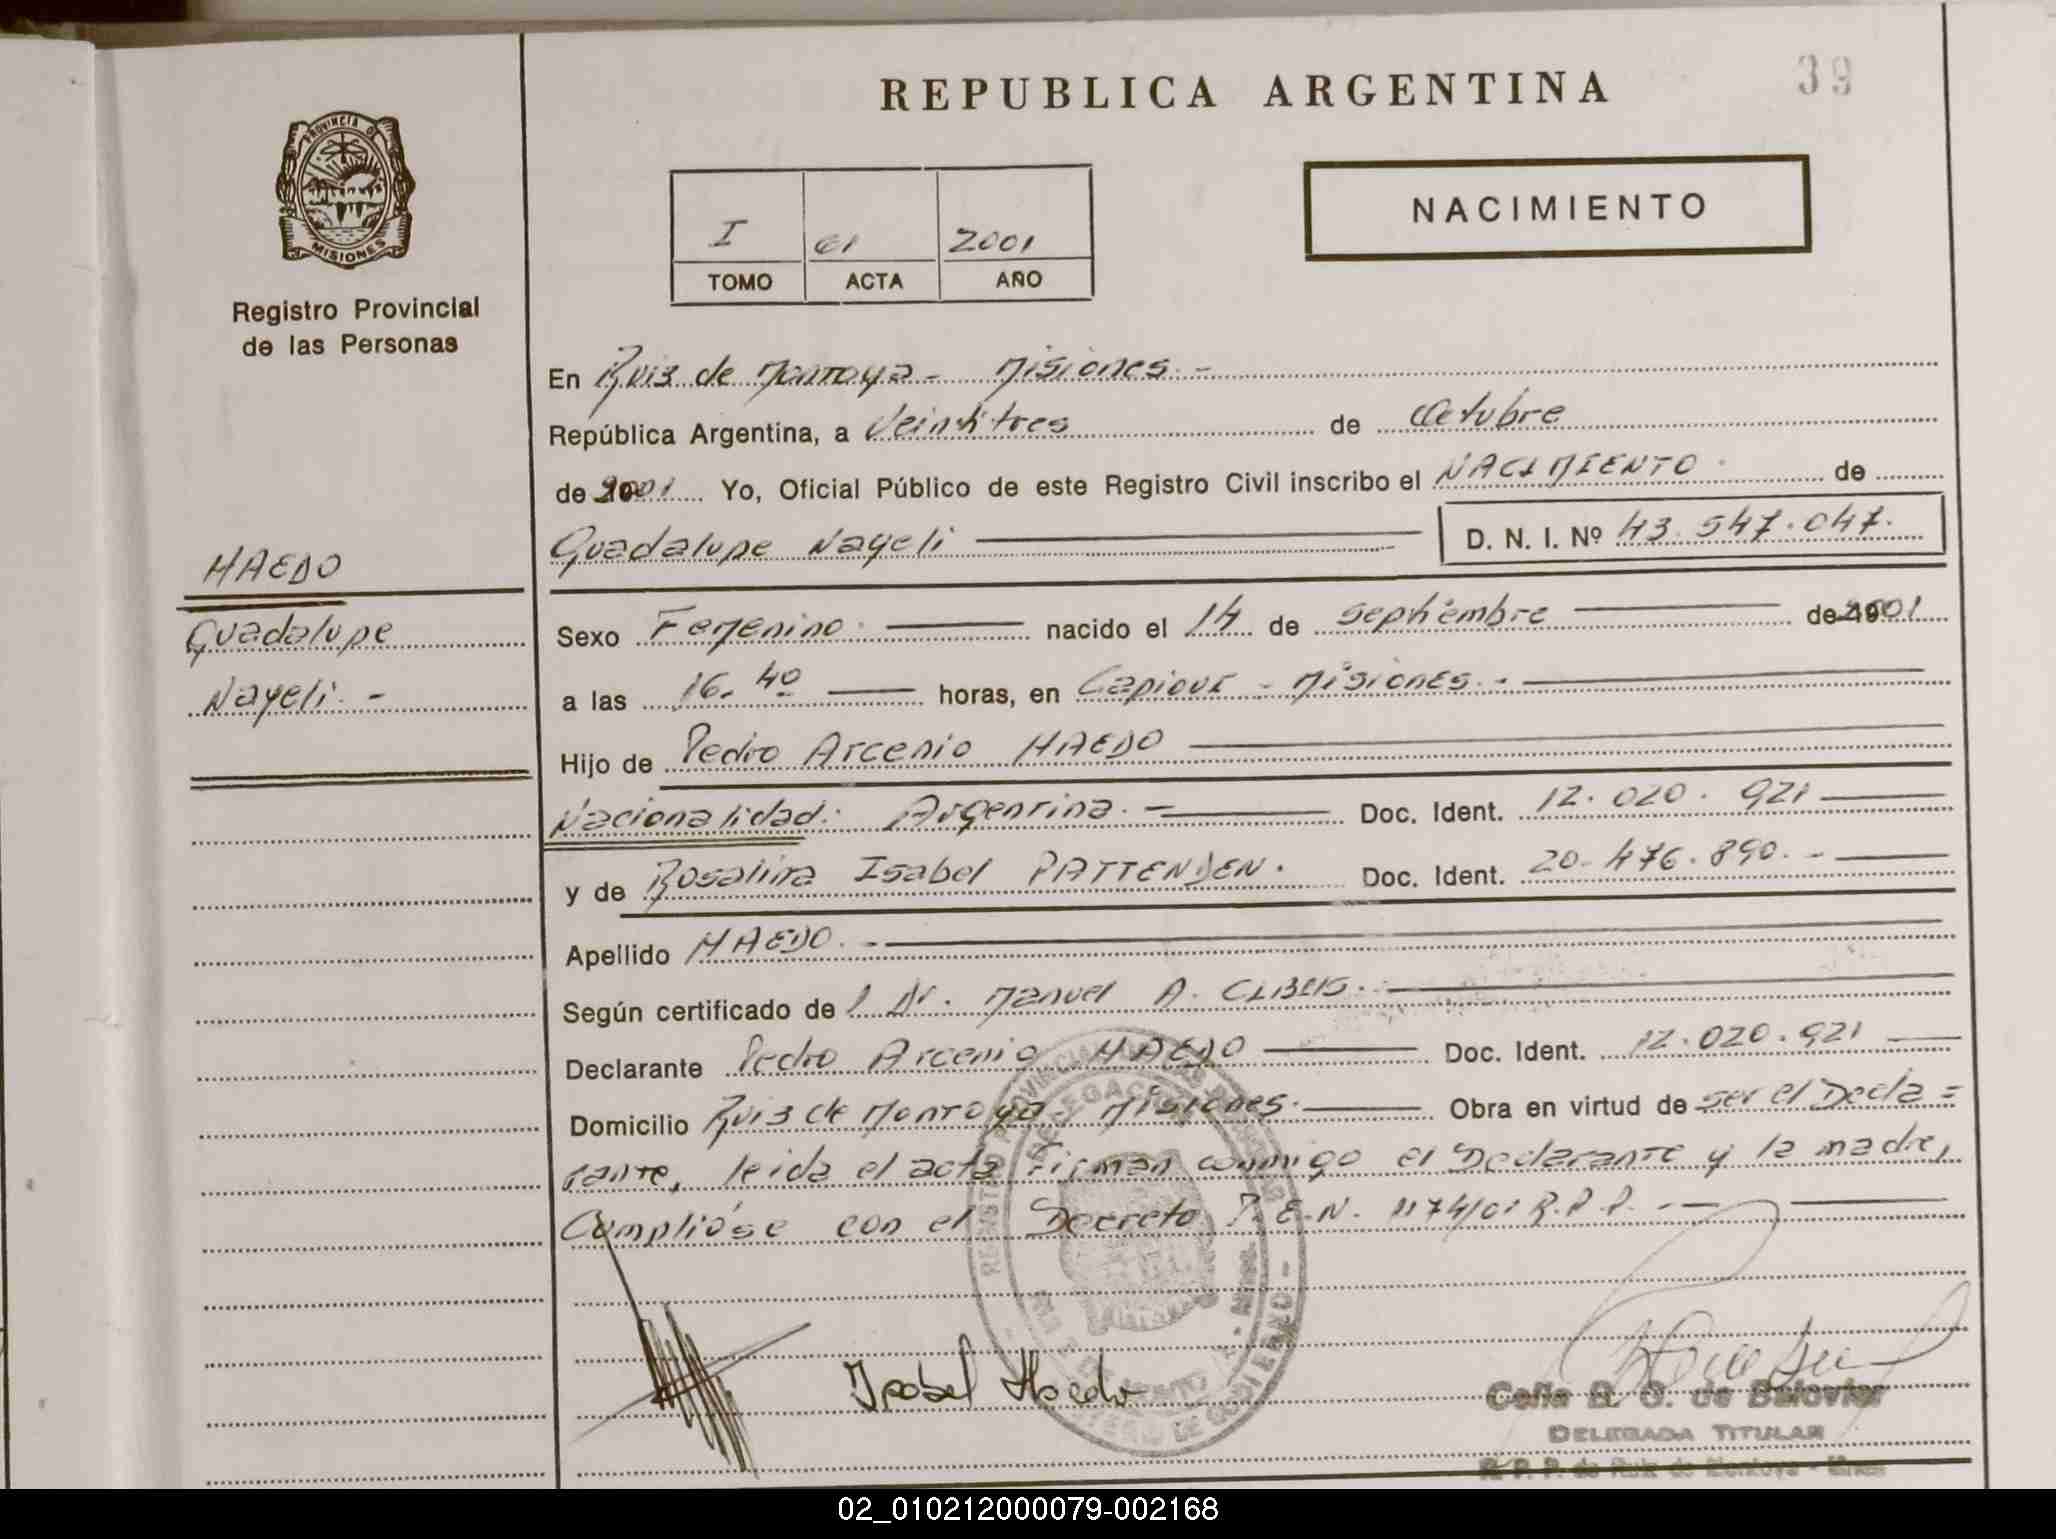 REPUBLICA ARGENTINA
39
PROVINCIA DE
MISIONES
Registro Provincial
de las Personas
I 61 2001
TOMO ACTA AÑO
NACIMIENTO
En Ruiz de Montoya - Misiones. -
República Argentina, a Veintitres de Octubre
de 2001 Yo, Oficial Público de este Registro Civil inscribo el NACIMIENTO. de
Guadalupe Nayeli D. N. I. Nº 43.547.047.
HAEDO
Guadalupe
Nayeli. -
Sexo Femenino. nacido el 14 de septiembre de 2001
a las 16.40 horas, en Capioví - Misiones. -
Hijo de Pedro Arcenio HAEDO
Nacionalidad: Argentina. - Doc. Ident. 12.020.921
y de Rosalina Isabel PATTENDEN. Doc. Ident. 20.476.890. -
Apellido HAEDO. -
Según certificado de l Dr. Manuel A.
Declarante Pedro Arcenio HAEDO Doc. Ident. 12.020.921
Domicilio Ruiz de Montoya - Misiones. Obra en virtud de ser el Decla=
rante, leida el acta Firman conmigo el Declarante y la madre,
Cumplióse con el Decreto P.E.N. 1174/01 R.P.P. -
Isabel Haedo
Celia B. O. de Balovier
DELEGADA TITULAR
R. P. P. de Ruiz de Montoya - Mnes
02_010212000079-002168